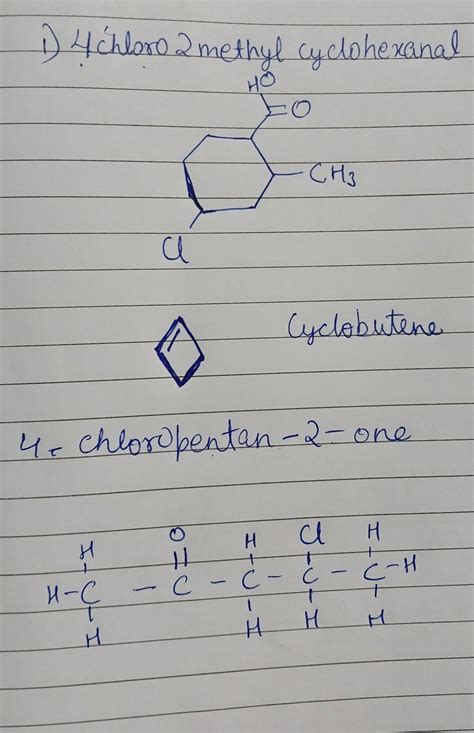 1) 4 chloro 2 methyl cyclohexanal
HO
O
CH3
Cl
Cyclobutene
4-chloropentan-2-one
H O H Cl H
H-C - C - C - C - C-H
H H H H